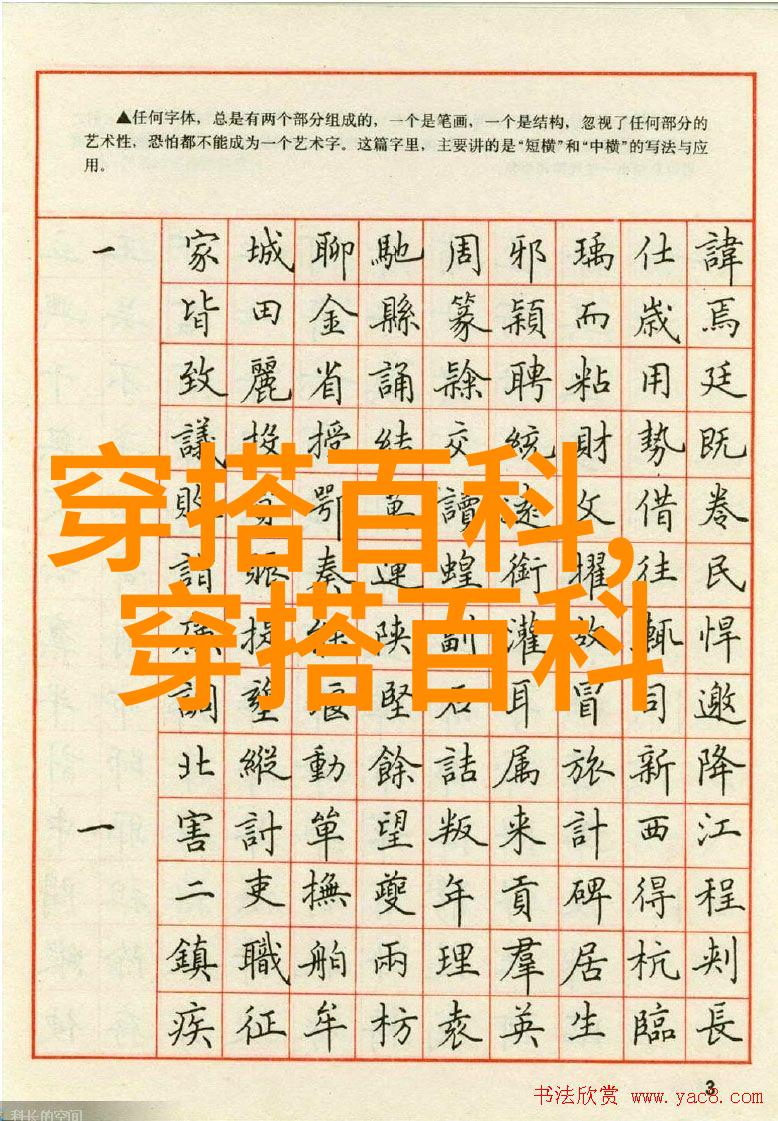 ▲任何字体，总是有两个部分组成的，一个是笔画，一个是结构，忽视了任何部分的
艺术性，恐怕都不能成为一个艺术字。这篇字里，主要讲的是“短横”和“中横”的写法与应
用。
一 家 城 聊 馳 周 邪 瑀 仕 諱
皆 田 金 縣 篆 穎 而 歲 焉
致 麗 省 誦 聘 粘 用 廷
議 投 授 結 交 統 財 勢 既
鄂 讀 文 借 卷
奏 運 蝗 銜 擢 往 民
陝 副 灌 放 輒 悍
訓 堅 石 耳 冒 司 邀
北 縱 動 餘 詰 属 旅 新 降
一 害 討 單 望 叛 来 計 西 江
二 吏 撫 夔 年 貢 碑 得 程
鎮 職 舶 兩 理 羣 居 杭 刺
疾 征 牟 枋 袁 英 生 臨 長
穿搭百科,
穿搭百科
3
书法欣赏 www.yac8.com
科长的空间